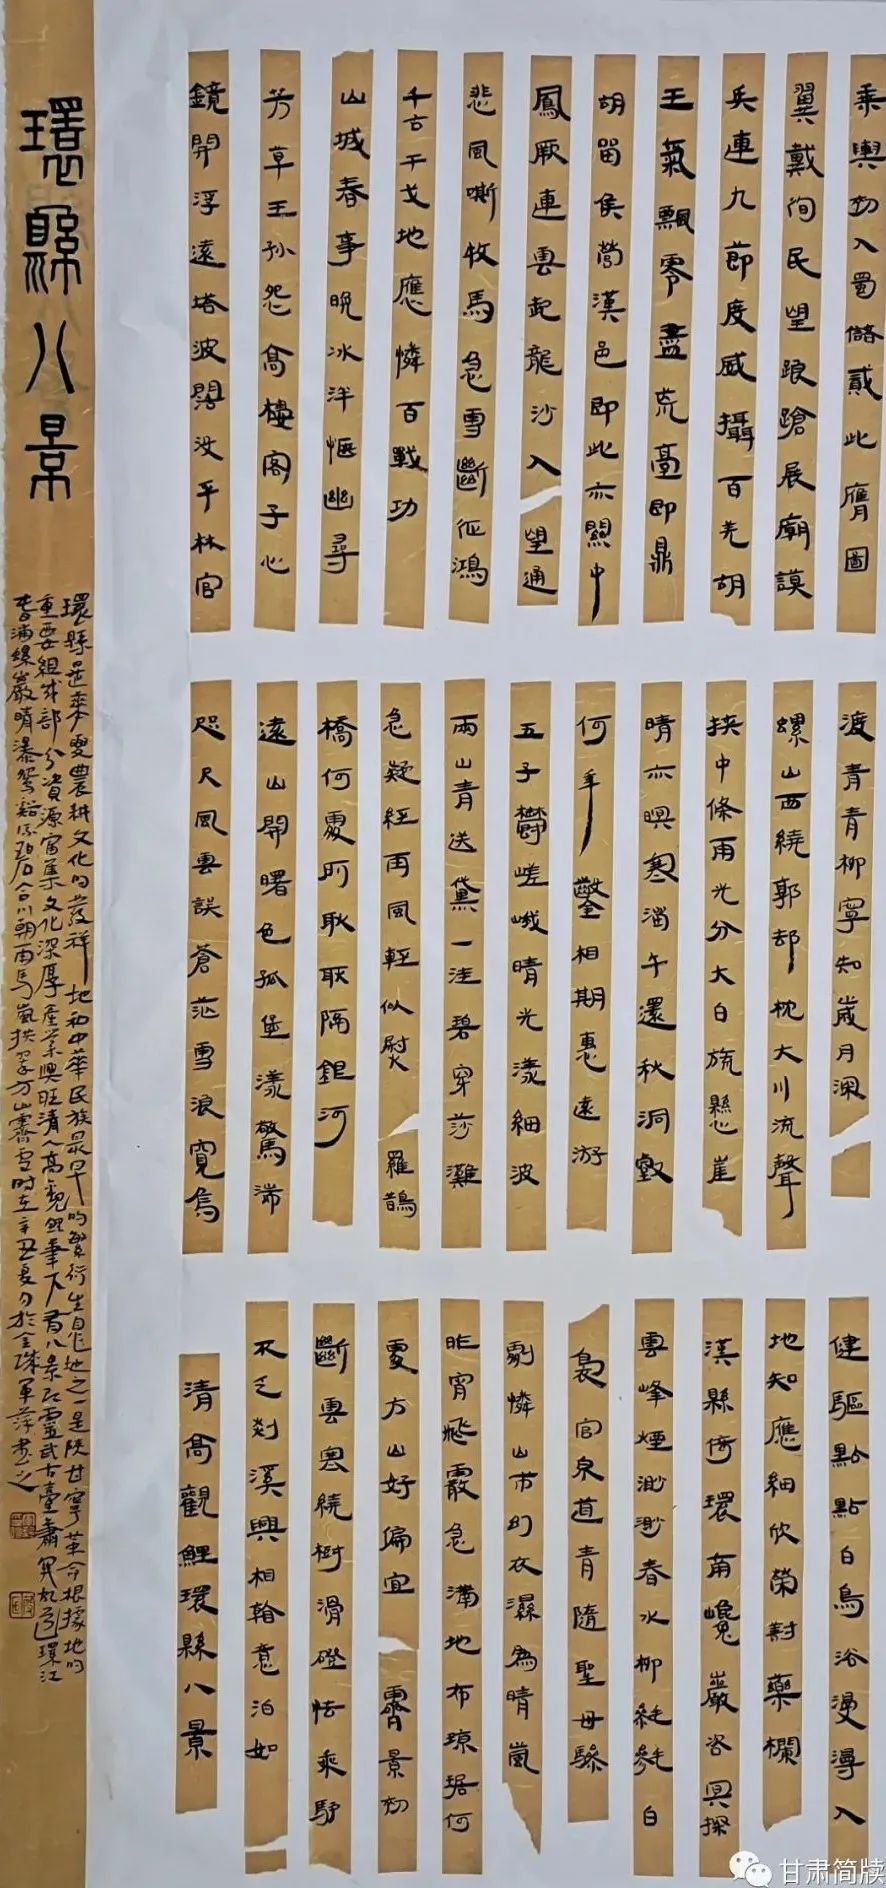 乘輿初入蜀儲貳此膺圖
翼戴徇民望踉蹌展廟謨
兵連九節度威攝百羌胡
王氣飄零盡荒臺即鼎
胡留侯營漢邑即此亦關中
鳳厥連雲起龍沙入望通
悲風嘶牧馬急雪斷征鴻
千古干戈地應憐百戰功
山城春事晚冰泮愜幽尋
芳草王孫怨高樓閣子心
鏡開浮遠塔波闊汝平林官
渡青青柳寧知歲月深
螺山西繞郭却枕大川流聲
挾中條雨光分太白旒懸崖
晴亦暝寒溜午還秋洞壑
何年鑿相期惠遠游
五子鬱嵯峨晴光漾細波
兩山青送黛一洼碧穿莎灘
急凝經雨風輕似熨羅鵲
橋何處所耿耿隔銀河
遠山開曙色孤堡漾驚湍
咫尺風雲誤蒼茫雪浪寬烏
健驅點點白鳥浴漫漫入
地知應細欣榮對藥欄
漢縣倚環甯巉巖冥探
雲峰煙渺渺春水柳毿毿白
裊官泉道青隨聖母驂
劇憐山市幻衣濕為晴嵐
昨宵飛霰急滿地布瓊琚何
處方山好偏宜霽景初
斷雲繞樹滑磴怯乘驴
不乏剡溪興相意泊如
清高觀鯉環縣八景
環縣八景
環縣是華夏農耕文化的發祥地和中華民族最早的繁衍生息地之一是陝甘寧革命根據地的
重要組成部分資源富集文化深厚產業興旺清人高觀鯉筆下有八景即靈武古臺蕭關故道環江
春浦螺巖晴瀑鴛谿浴碧合川朝雨馬嵐拱翠方山霽雪時在辛丑夏月於金城軍萍書之
甘肃简牍